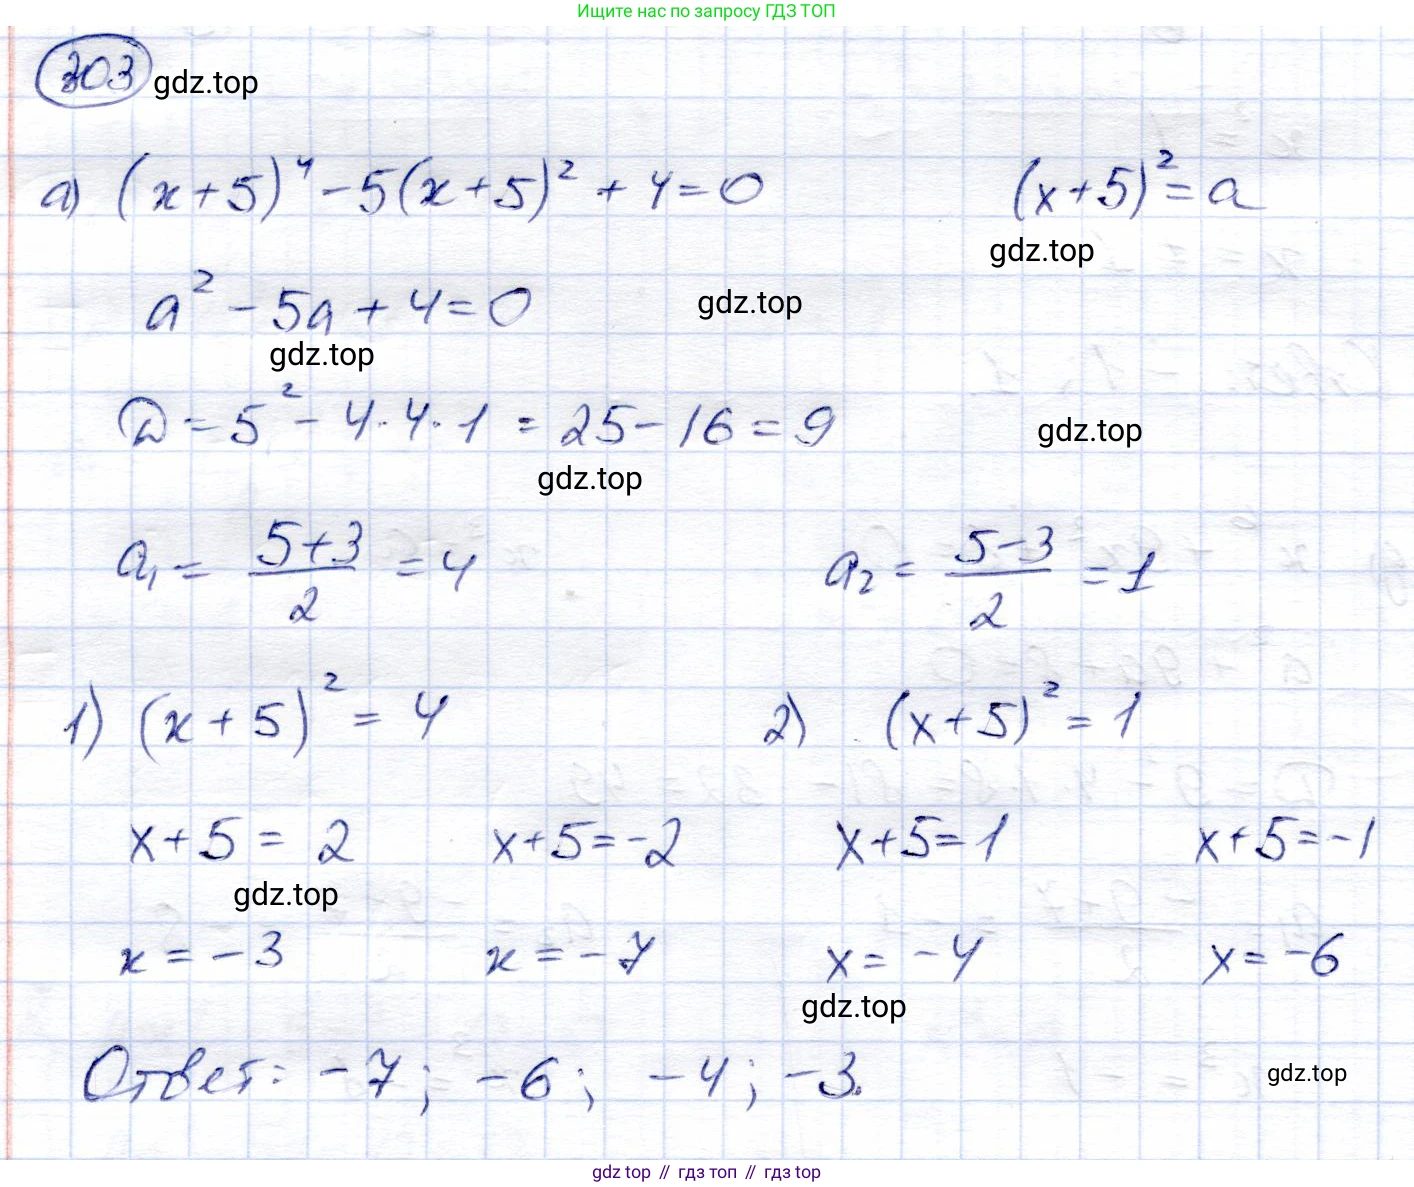 Ищите нас по запросу ГДЗ ТОП
303 gdz.top
а) (x+5)⁴ - 5(x+5)² + 4 = 0 (x+5)² = a
gdz.top
a² - 5a + 4 = 0 gdz.top
gdz.top
D = 5² - 4·4·1 = 25 - 16 = 9 gdz.top
gdz.top
a₁ = (5+3)/2 = 4 a₂ = (5-3)/2 = 1
1) (x+5)² = 4 2) (x+5)² = 1
x+5 = 2 x+5 = -2 x+5 = 1 x+5 = -1
gdz.top
x = -3 x = -7 x = -4 x = -6
gdz.top
Ответ: -7; -6; -4; -3.
gdz.top
gdz top // гдз топ // gdz top